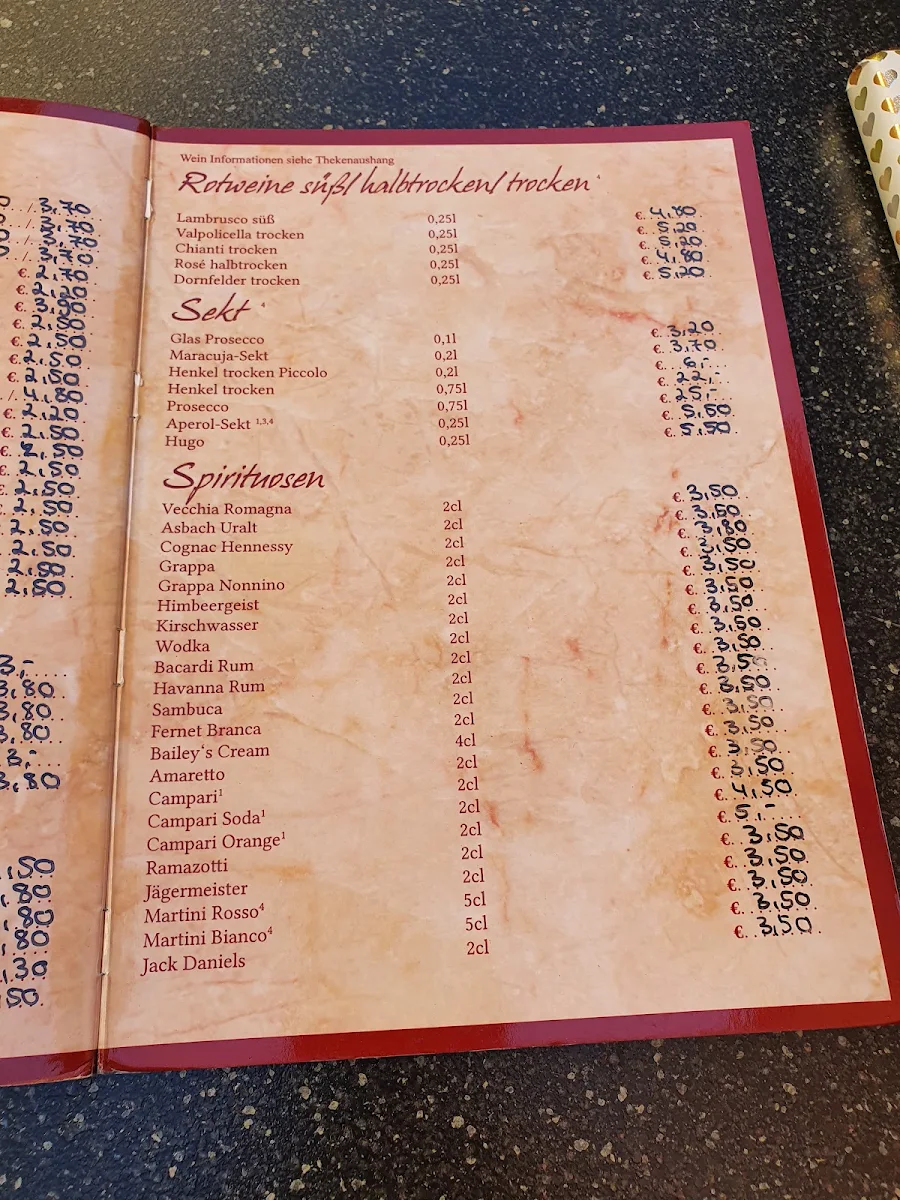 3,70
3,70
3,70
3,70
€. 2,70
€. 2,20
€. 3,80
€. 2,80
€. 2,50
€. 2,50
€. 2,50
4,80
€. 2,20
€. 2,50
€. 2,50
€. 2,50
2,50
2,50
2,50
2,50
2,80
2,50
3,-
3,80
3,80
3,80
3,-
3,80
,50
,80
,80
,80
,30
,50
Wein Informationen siehe Thekenaushang
Rotweine süß/ halbtrocken/ trocken ⁴
Lambrusco süß 0,25l €. 4,80
Valpolicella trocken 0,25l €. 5,20
Chianti trocken 0,25l €. 5,20
Rosé halbtrocken 0,25l €. 4,80
Dornfelder trocken 0,25l €. 5,20
Sekt ⁴
Glas Prosecco 0,1l €. 3,20
Maracuja-Sekt 0,2l €. 3,70
Henkel trocken Piccolo 0,2l €. 6,-
Henkel trocken 0,75l €. 22,-
Prosecco 0,75l €. 25,-
Aperol-Sekt ¹,³,⁴ 0,25l €. 5,50
Hugo 0,25l €. 5,50
Spirituosen
Vecchia Romagna 2cl €. 3,50
Asbach Uralt 2cl €. 3,50
Cognac Hennessy 2cl €. 3,80
Grappa 2cl €. 3,50
Grappa Nonnino 2cl €. 3,50
Himbeergeist 2cl €. 3,50
Kirschwasser 2cl €. 3,50
Wodka 2cl €. 3,50
Bacardi Rum 2cl €. 3,50
Havanna Rum 2cl €. 3,50
Sambuca 2cl €. 3,50
Fernet Branca 2cl €. 3,50
Bailey's Cream 4cl €. 3,50
Amaretto 2cl €. 3,50
Campari¹ 2cl €. 3,50
Campari Soda¹ 2cl €. 4,50
Campari Orange¹ 2cl €. 5,-
Ramazotti 2cl €. 3,50
Jägermeister 2cl €. 3,50
Martini Rosso⁴ 5cl €. 3,50
Martini Bianco⁴ 5cl €. 3,50
Jack Daniels 2cl €. 3,50